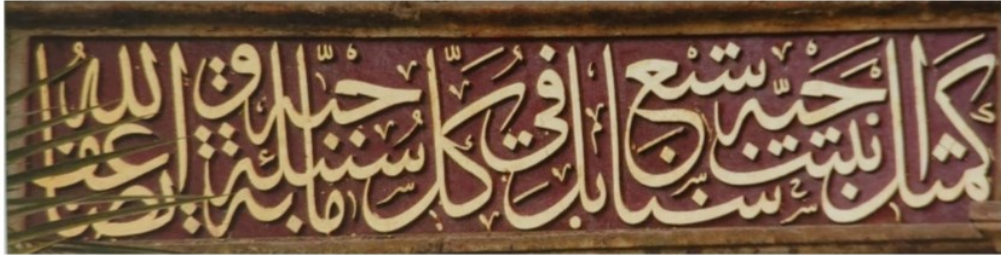 كمثل حبة أنبتت سبع سنابل في كل سنبلة مائة حبة والله يضاعف